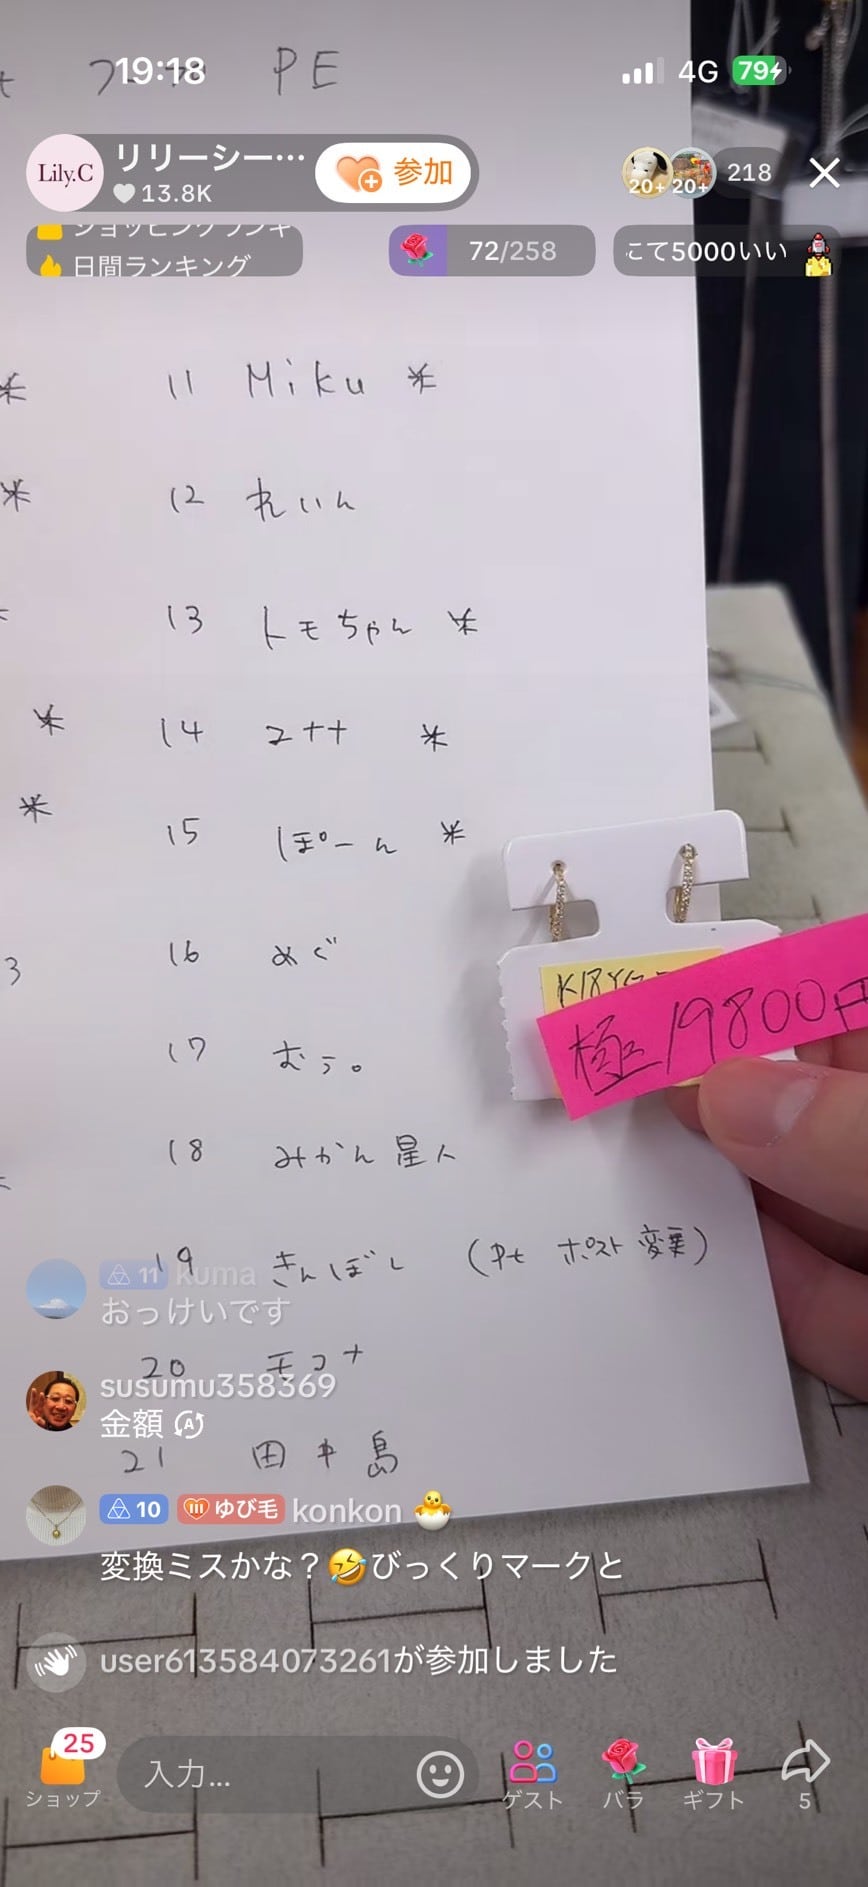 19:18
4G
79
PE
Lily.C
リリーシー…
13.8K
参加
20+
20+
218
ショッピングランキ
日間ランキング
72/258
にて5000いい
11 Miku *
12 れいん
13 トモちゃん *
14 *
15 ぽーん *
16 めぐ
3
17 むぅ。
18 みかん星人
19 きんぼし (Pt ポスト変更)
20 モコナ
21 田中島
K18YG
極 19800円
11 kuma
おっけいです
susumu358369
金額
10 ゆび毛 konkon 🐣
変換ミスかな？🤣びっくりマークと
user613584073261が参加しました
25
ショップ
入力...
ゲスト
バラ
ギフト
5